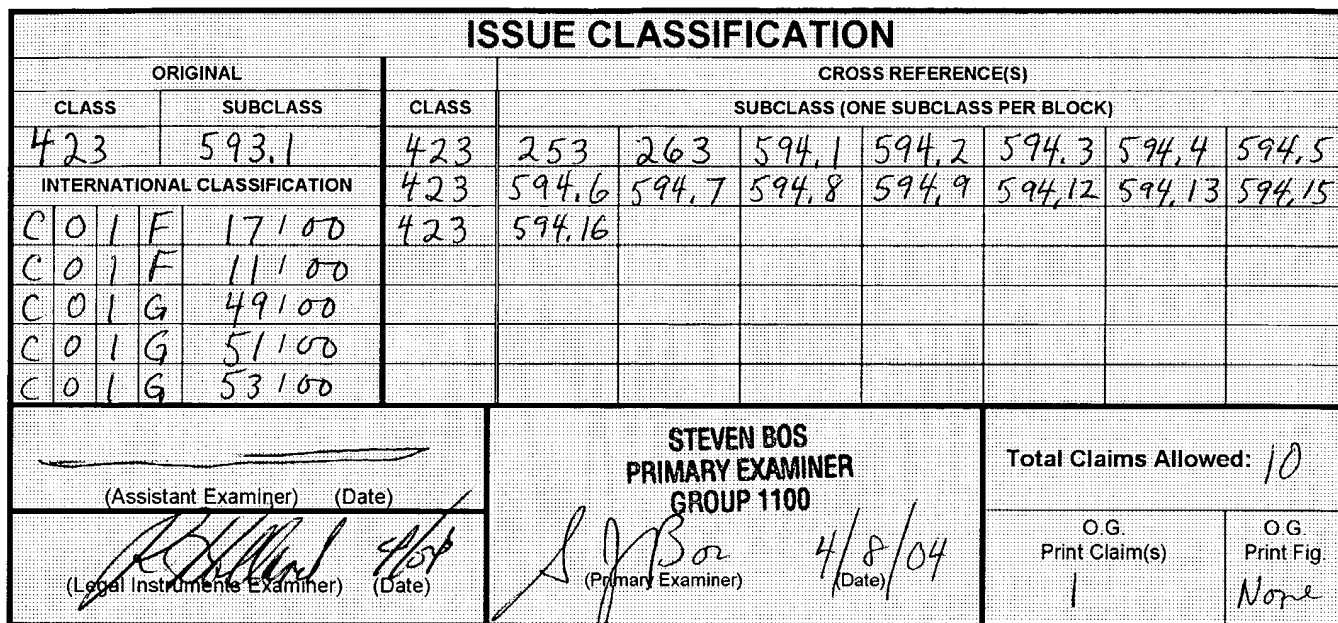 ISSUE CLASSIFICATION
ORIGINAL CROSS REFERENCE(S)
CLASS SUBCLASS CLASS SUBCLASS (ONE SUBCLASS PER BLOCK)
423 593.1 423 253 263 594.1 594.2 594.3 594.4 594.5
INTERNATIONAL CLASSIFICATION 423 594.6 594.7 594.8 594.9 594.12 594.13 594.15
C 0 1 F 17/00 423 594.16
C 0 1 F 11/00
C 0 1 G 49/00
C 0 1 G 51/00
C 0 1 G 53/00
(Assistant Examiner) (Date)
(Legal Instruments Examiner) (Date)
STEVEN BOS
PRIMARY EXAMINER
GROUP 1100
S J Bos 4/8/04
(Primary Examiner) (Date)
Total Claims Allowed: 10
O.G.
Print Claim(s)
1
O.G.
Print Fig.
None